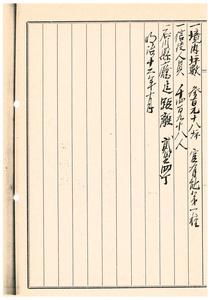 一境内坪数 参百九十八坪 官有地第一種
一信徒人員 千四百九十八人
一石川県庁迄距離 弐里四丁
明治十六年十月